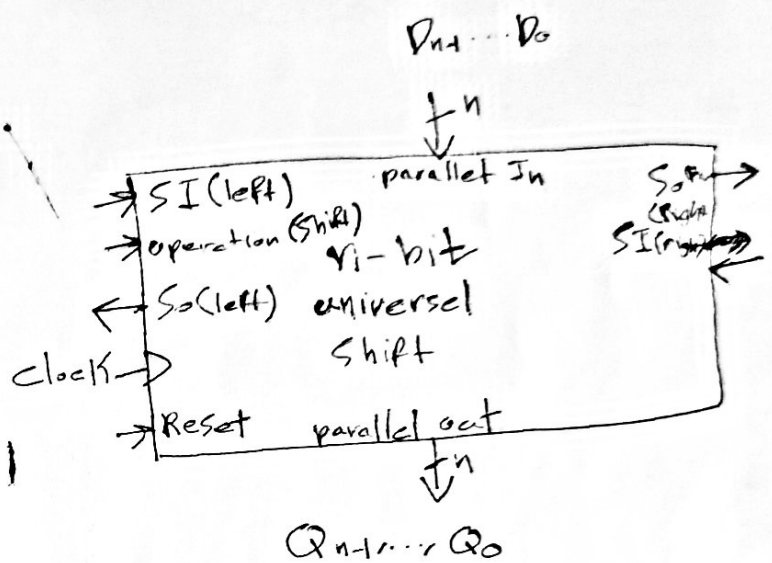 Dn-1....D0
n
SI(left)
parallet In
So
(Right
operation (Shift)
n-bit
SI(right)
So(left)
universel
Shift
Clock
Reset
parallel out
n
Qn-1.... Q0